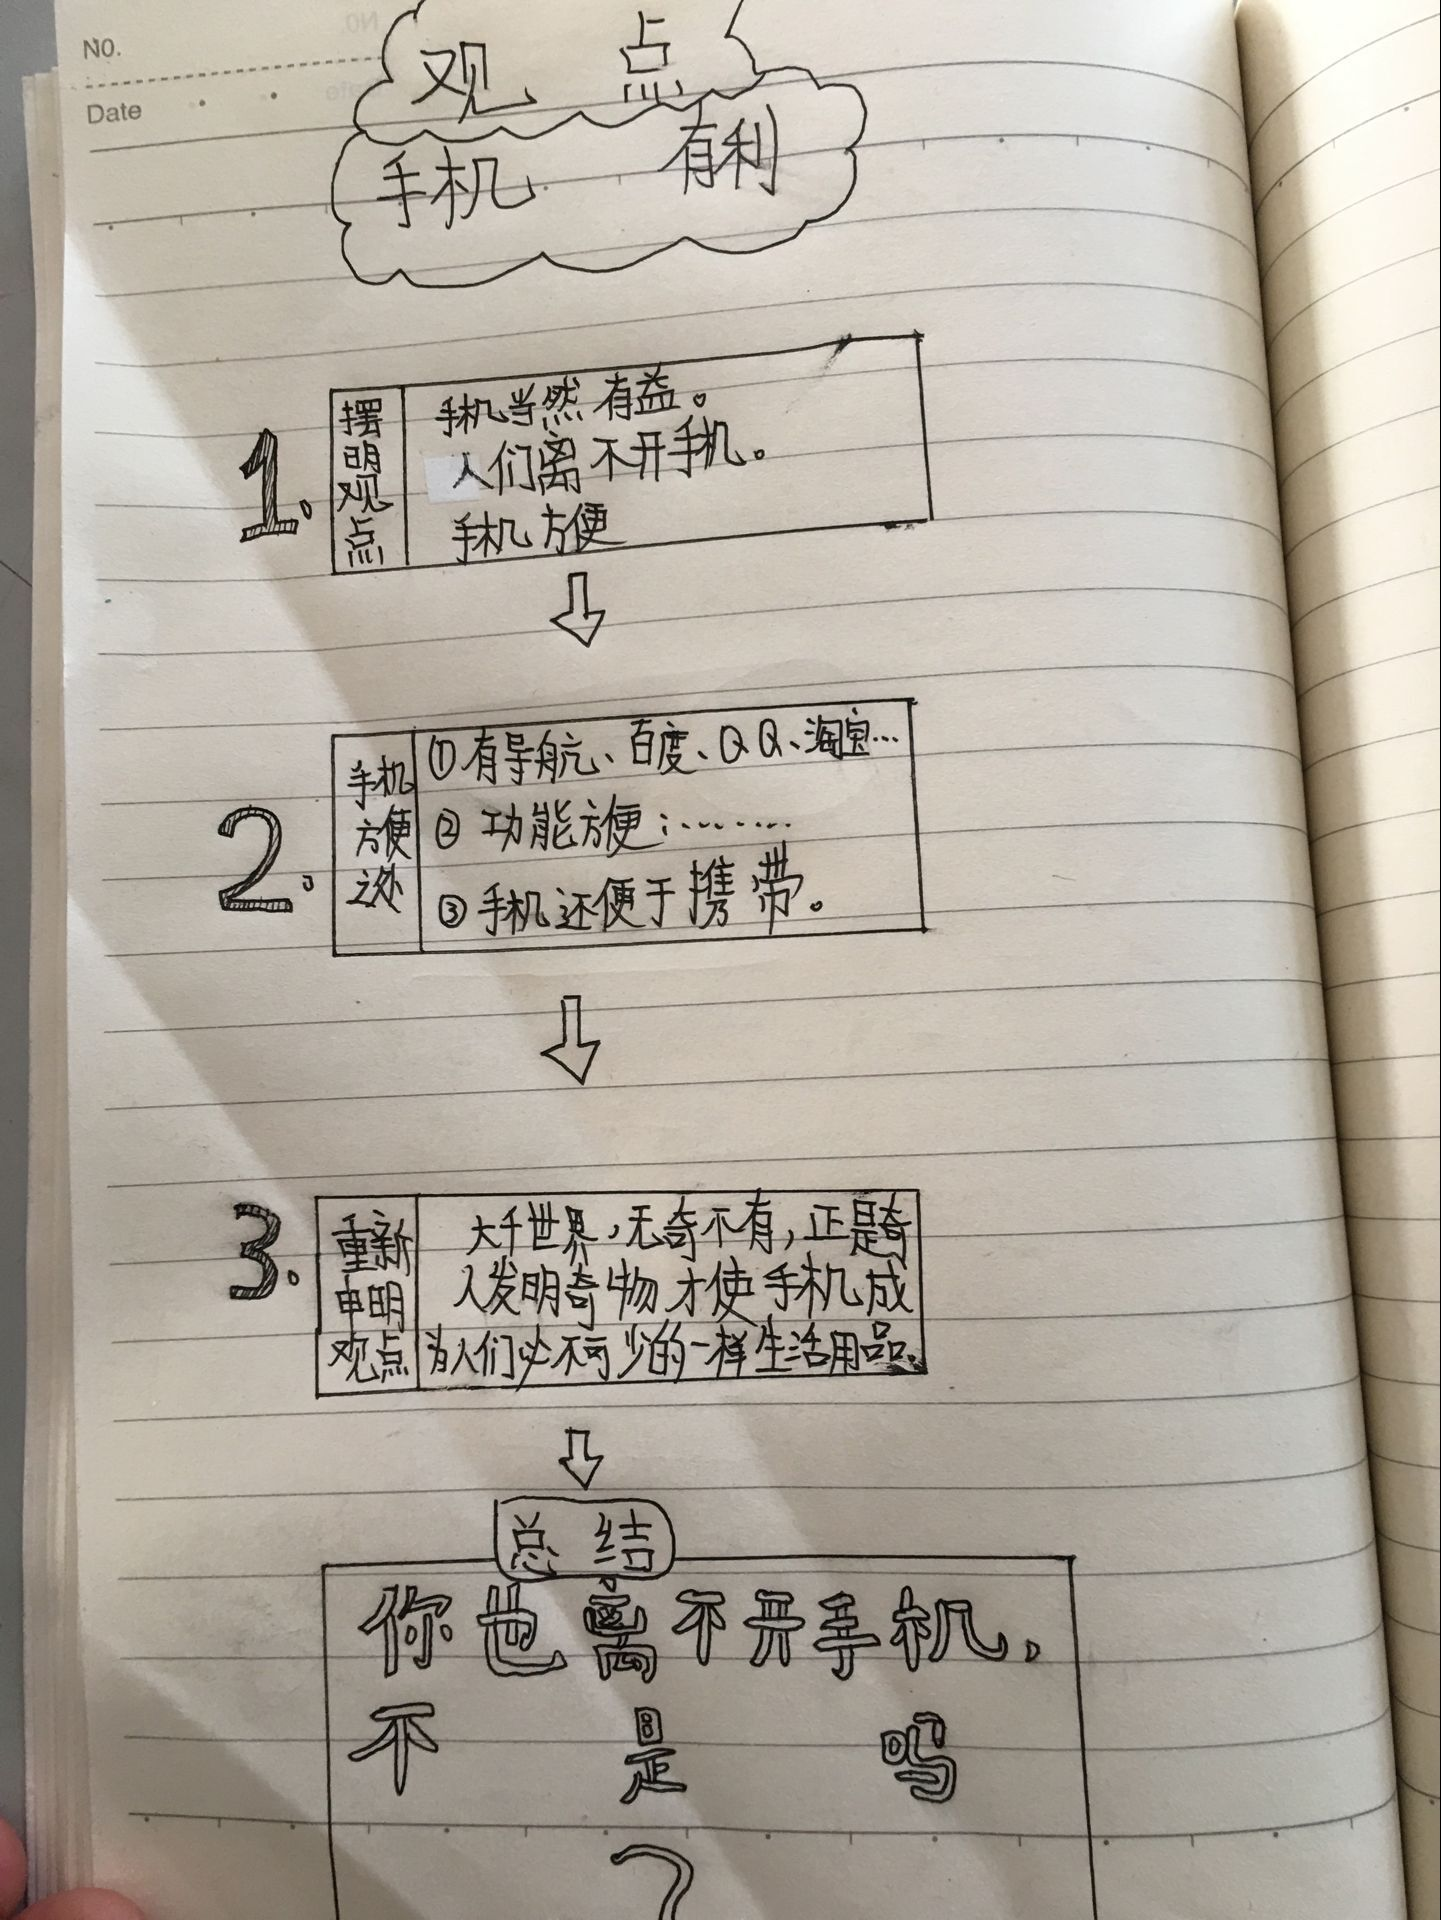 NO.
Date
观 点
手机 有利
1.
摆明观点
手机当然有益。
人们离不开手机。
手机方便
2.
手机方便之处
①有导航、百度、QQ、淘宝…
②功能方便:........
③手机还便于携带。
3.
重新申明观点
大千世界,无奇不有,正是奇
人发明奇物才使手机成
为人们必不可少的一样生活用品.
总结
你也离不开手机,
不是吗
?